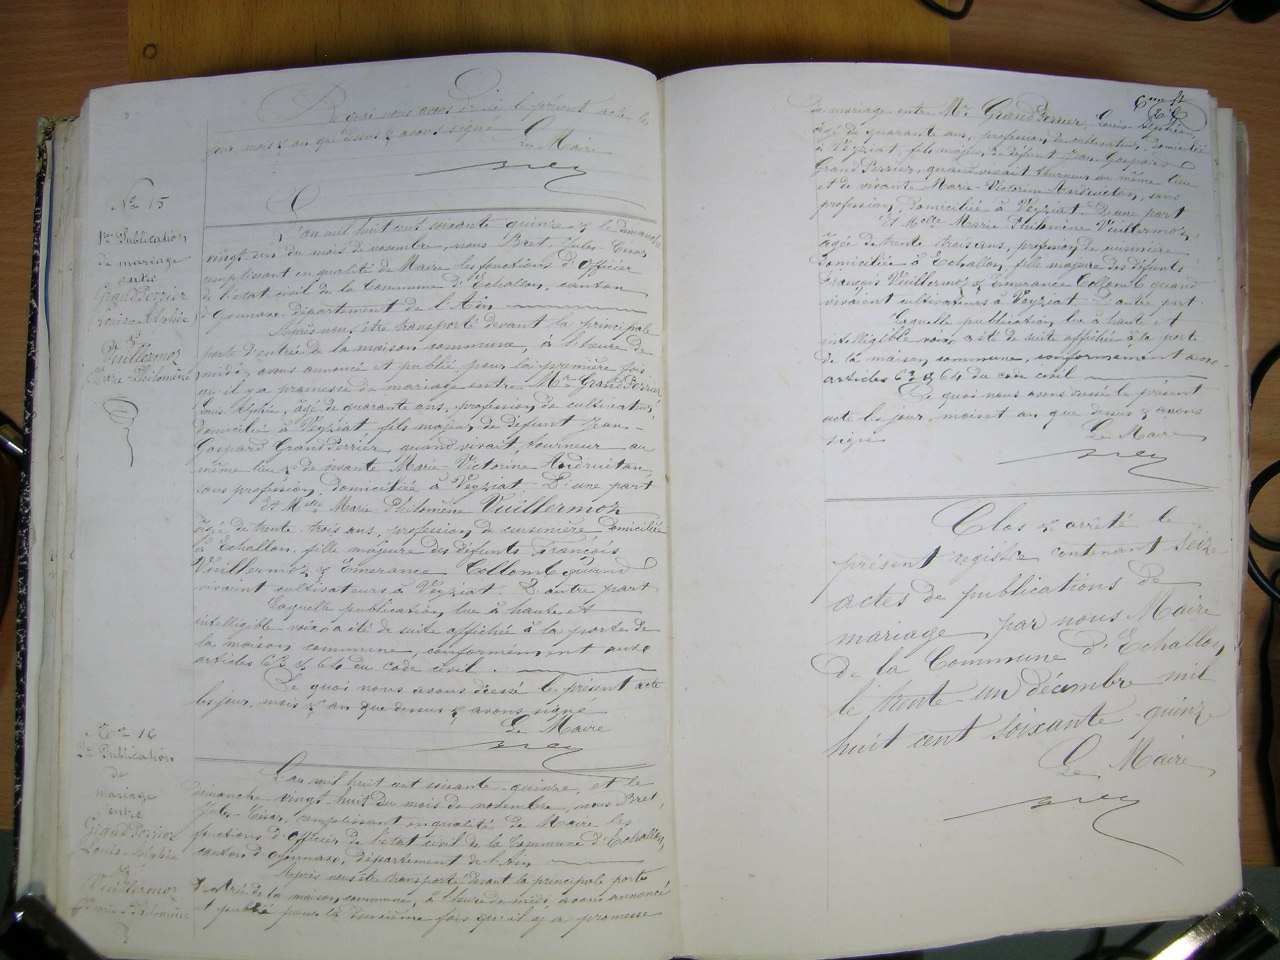 De quoi nous avons dressé le présent acte les
jour, mois & an que dessus & avons signé
Le Maire
Bret
No 15
1re Publication
de mariage
entre
GrandPerrier
Louis-Alphée
&
Vuillermoz
Marie Philomène
L'an mil huit cent soixante quinze & le dimanche
vingt un du mois de novembre, nous Bret Jules-César
remplissant en qualité de Maire les fonctions d'Officier
de l'état civil de la Commune d'Echallon, canton
d'Oyonnax, département de l'Ain
Après nous être transporté devant la principale
porte d'entrée de la maison commune, à l'heure de
midi, avons annoncé et publié pour la première fois
qu'il y a promesse de mariage entre Mr GrandPerrier,
Louis Alphée, âgé de quarante ans, profession de cultivateur,
domicilié à Veyziat fils majeur de défunt Jean-
Gaspard GrandPerrier quand vivait, tourneur au
même lieu & de vivante Marie-Victorine Andruétan,
sans profession, domiciliée à Veyziat D'une part
Et Melle Marie Philomène Vuillermoz
âgée de trente trois ans, profession de cuisinière domiciliée
à Echallon, fille majeure des défunts François
Vuillermoz & Emerance Collomb quand
vivaient cultivateurs à Veyziat. D'autre part.
Laquelle publication, lue à haute et
intelligible voix a été de suite affichée à la porte de
la maison commune, conformément aux
articles 63 & 64 du code civil.
De quoi nous avons dressé le présent acte
les jour, mois & an que dessus & avons signé
Le Maire
Bret
No 16
2e Publication
de
mariage
entre
GrandPerrier
Louis-Alphée
&
Vuillermoz
Marie-Philomène
L'an mil huit cent soixante quinze, et le
dimanche vingt huit du mois de novembre, nous Bret,
Jules-César, remplissant en qualité de Maire les
fonctions d'Officier de l'état civil de la Commune d'Echallon,
canton d'Oyonnax, département de l'Ain
Après nous être transporté devant la principale porte
d'entrée de la maison commune, à l'heure de midi, avons annoncé
et publié pour la deuxième fois qu'il y a promesse
de mariage entre Mr GrandPerrier, Louis Alphée
âgé de quarante ans, profession de cultivateur, domicilié
à Veyziat, fils majeur de défunt Jean-Gaspard
GrandPerrier, quand vivait tourneur au même lieu
et de vivante Marie-Victorine Andruétan, sans
profession, domiciliée à Veyziat D'une part
Et Melle Marie Philomène Vuillermoz,
âgée de trente trois ans, profession de cuisinière
domiciliée à Echallon, fille majeure des défunts
François Vuillermoz & Emerance Collomb quand
vivaient cultivateurs à Veyziat. D'autre part.
Laquelle publication, lue à haute et
intelligible voix a été de suite affichée à la porte
de la maison commune, conformément aux
articles 63 & 64 du code civil
De quoi nous avons dressé le présent
acte les jour, mois et an que dessus & avons
signé
Le Maire
Bret
Clos & arrêté le
présent registre contenant seize
actes de publications de
mariage, par nous Maire
de la Commune d'Echallon,
le trente-un décembre mil
huit cent soixante-quinze
Le Maire,
Bret